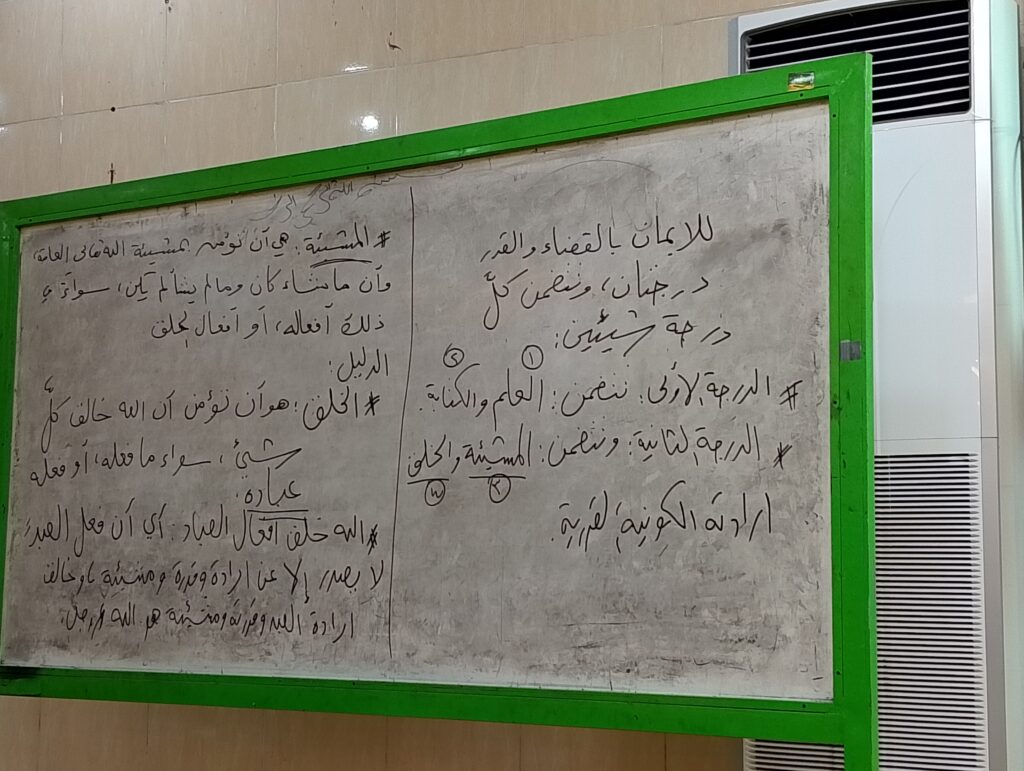 للإيمان بالقضاء والقدر
درجتان، وتتضمن كلّ
درجة شيئين:
① ②
# الدرجة الأولى: تتضمن: العلم والكتابة.
# الدرجة الثانية: وتتضمن: المشيئة والخلق
إرادته الكونية القدرية.
# المشيئة: هي أن تؤمن بمشيئة الله تعالى العامة،
وأن ما شاء كان وما لم يشأ لم يكن، سواءً في
ذلك أفعاله، أو أفعال الخلق
الدليل:
# الخلق: هو أن تؤمن أن الله خالق كلّ
شيئ، سواء ما فعله، أو فعله
عباده.
# الله خلق أفعال العباد: أي أن فعل العبد
لا يصدر إلا عن إرادة وقدرة ومشيئة وخالق
إرادة العبد وقدرته ومشيئته هو الله عزوجل.